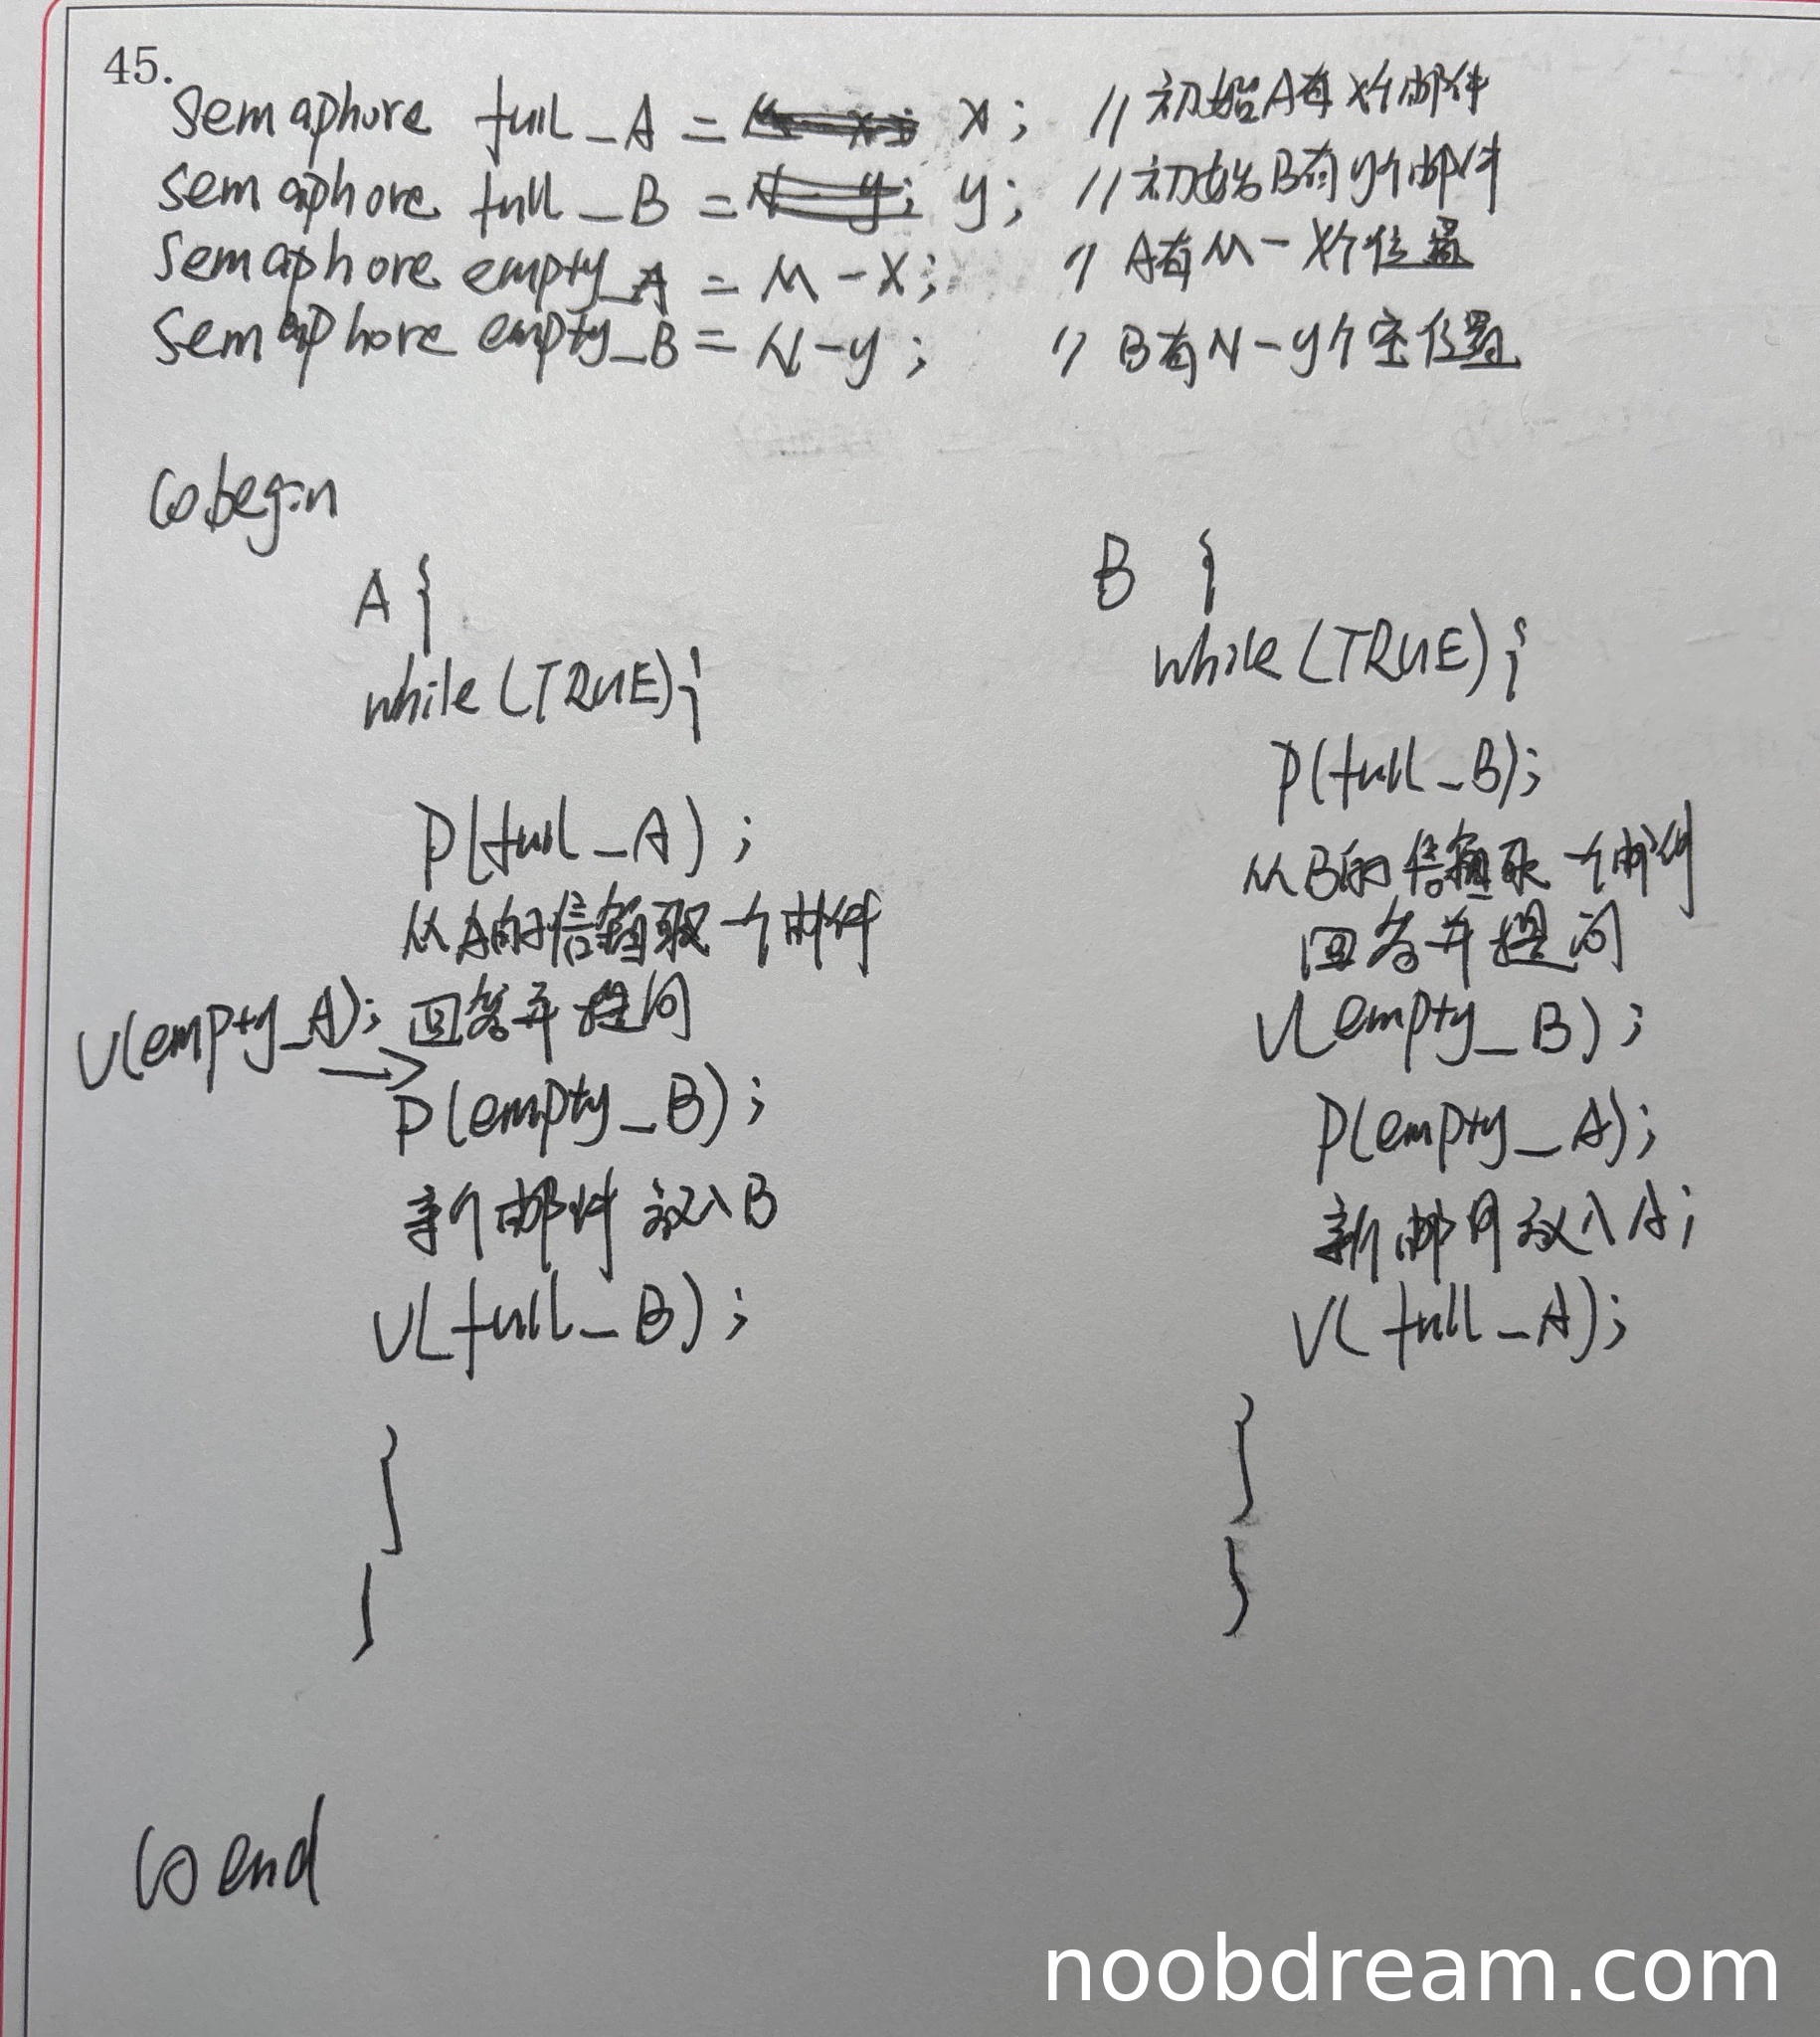 45.
semaphore full_A = x; // 初始A有x个邮件
semaphore full_B = y; // 初始B有y个邮件
semaphore empty_A = M-x; // A有M-x个位置
semaphore empty_B = N-y; // B有N-y个空位置
cobegin
A {
while(TRUE){
P(full_A);
从A的信箱取一个邮件
回答并提问
V(empty_A);
P(empty_B);
新邮件放入B
V(full_B);
}
}
B {
while(TRUE){
P(full_B);
从B的信箱取一个邮件
回答并提问
V(empty_B);
P(empty_A);
新邮件放入A;
V(full_A);
}
}
coend
noobdream.com